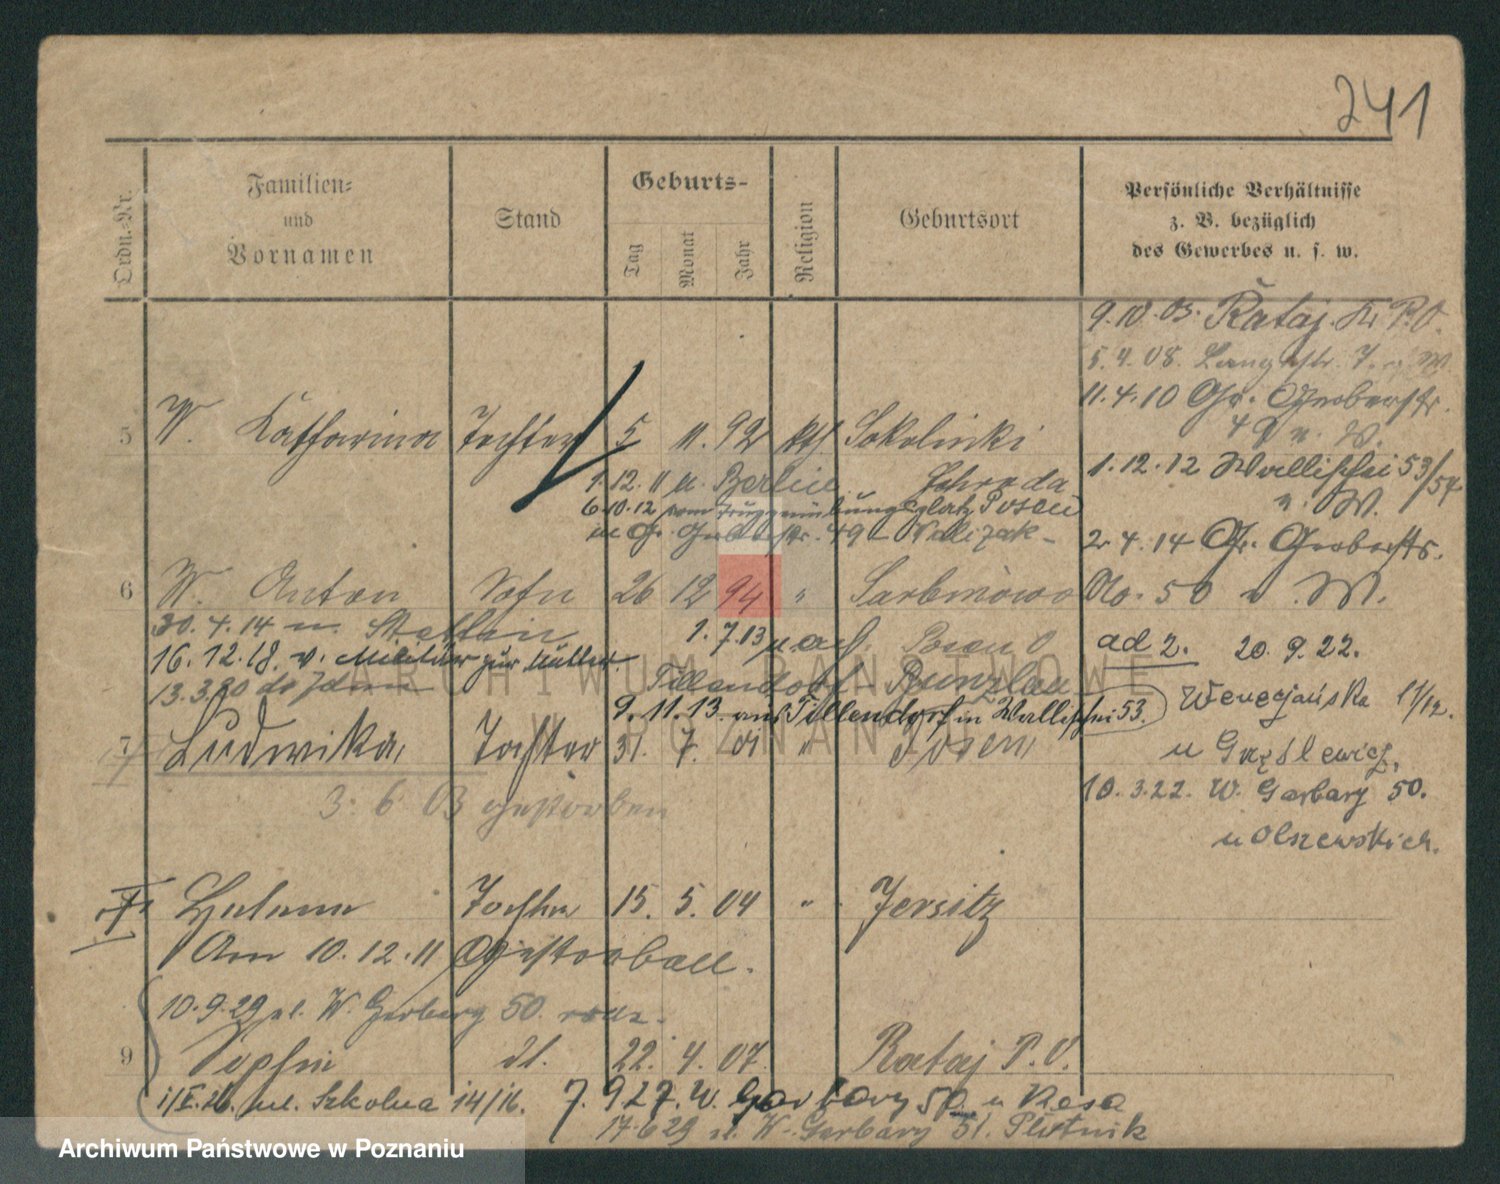 241
Ordn.-Nr.
Familien-
und
Vornamen
Stand
Geburts-
Tag
Monat
Jahr
Religion
Geburtsort
Persönliche Verhältnisse
z. B. bezüglich
des Gewerbes u. s. w.
9.10.03. Rataj. P.O.
5.4.08.
11.4.10 Gr. Gerberstr.
49 n. W.
1.12.12 Wallischei 53/54
n. W.
2.4.14 Gr. Gerberstr.
No. 50 n. W.
ad 2. 20.9.22.
Wenecjańska 11/12.
u
10.3.22. W. Garbary 50.
u Olszewskich.
5 W. Katharina Tochter 5 11. 92 kth Sokolniki
1.12.11 n. Berlin
6.10.12 vom Truppenübungsplatz Posen
Gr. Gerberstr. 49 Walizak
6 W. Anton Sohn 26 12 94 " Sarbinowo
30.4.14 n. Stettin 1.7.13 nach Posen O
16.12.18. v. Militär zur Mutter
Tillendorf Bunzlau
13.3.20
9.11.13. aus Tillendorf in Wallischei 53.
7 Ludwika Tochter 31. 7. 01 " Posen
3. 6 03 gestorben
Helene Tochter 15. 5. 04 " Jersitz
Am 10.12.11 Gestorben.
10.9.29 ul. W. Garbary 50.
9 Sophie dt. 22. 4. 07. Rataj P.O.
ul. Szkolna 14/16. 7.927. W. Garbary 50 u Kosa
17.6 29 ul. W. Garbary 51. Plotnik
ARCHIWUM PAŃSTWOWE
W POZNANIU
Archiwum Państwowe w Poznaniu